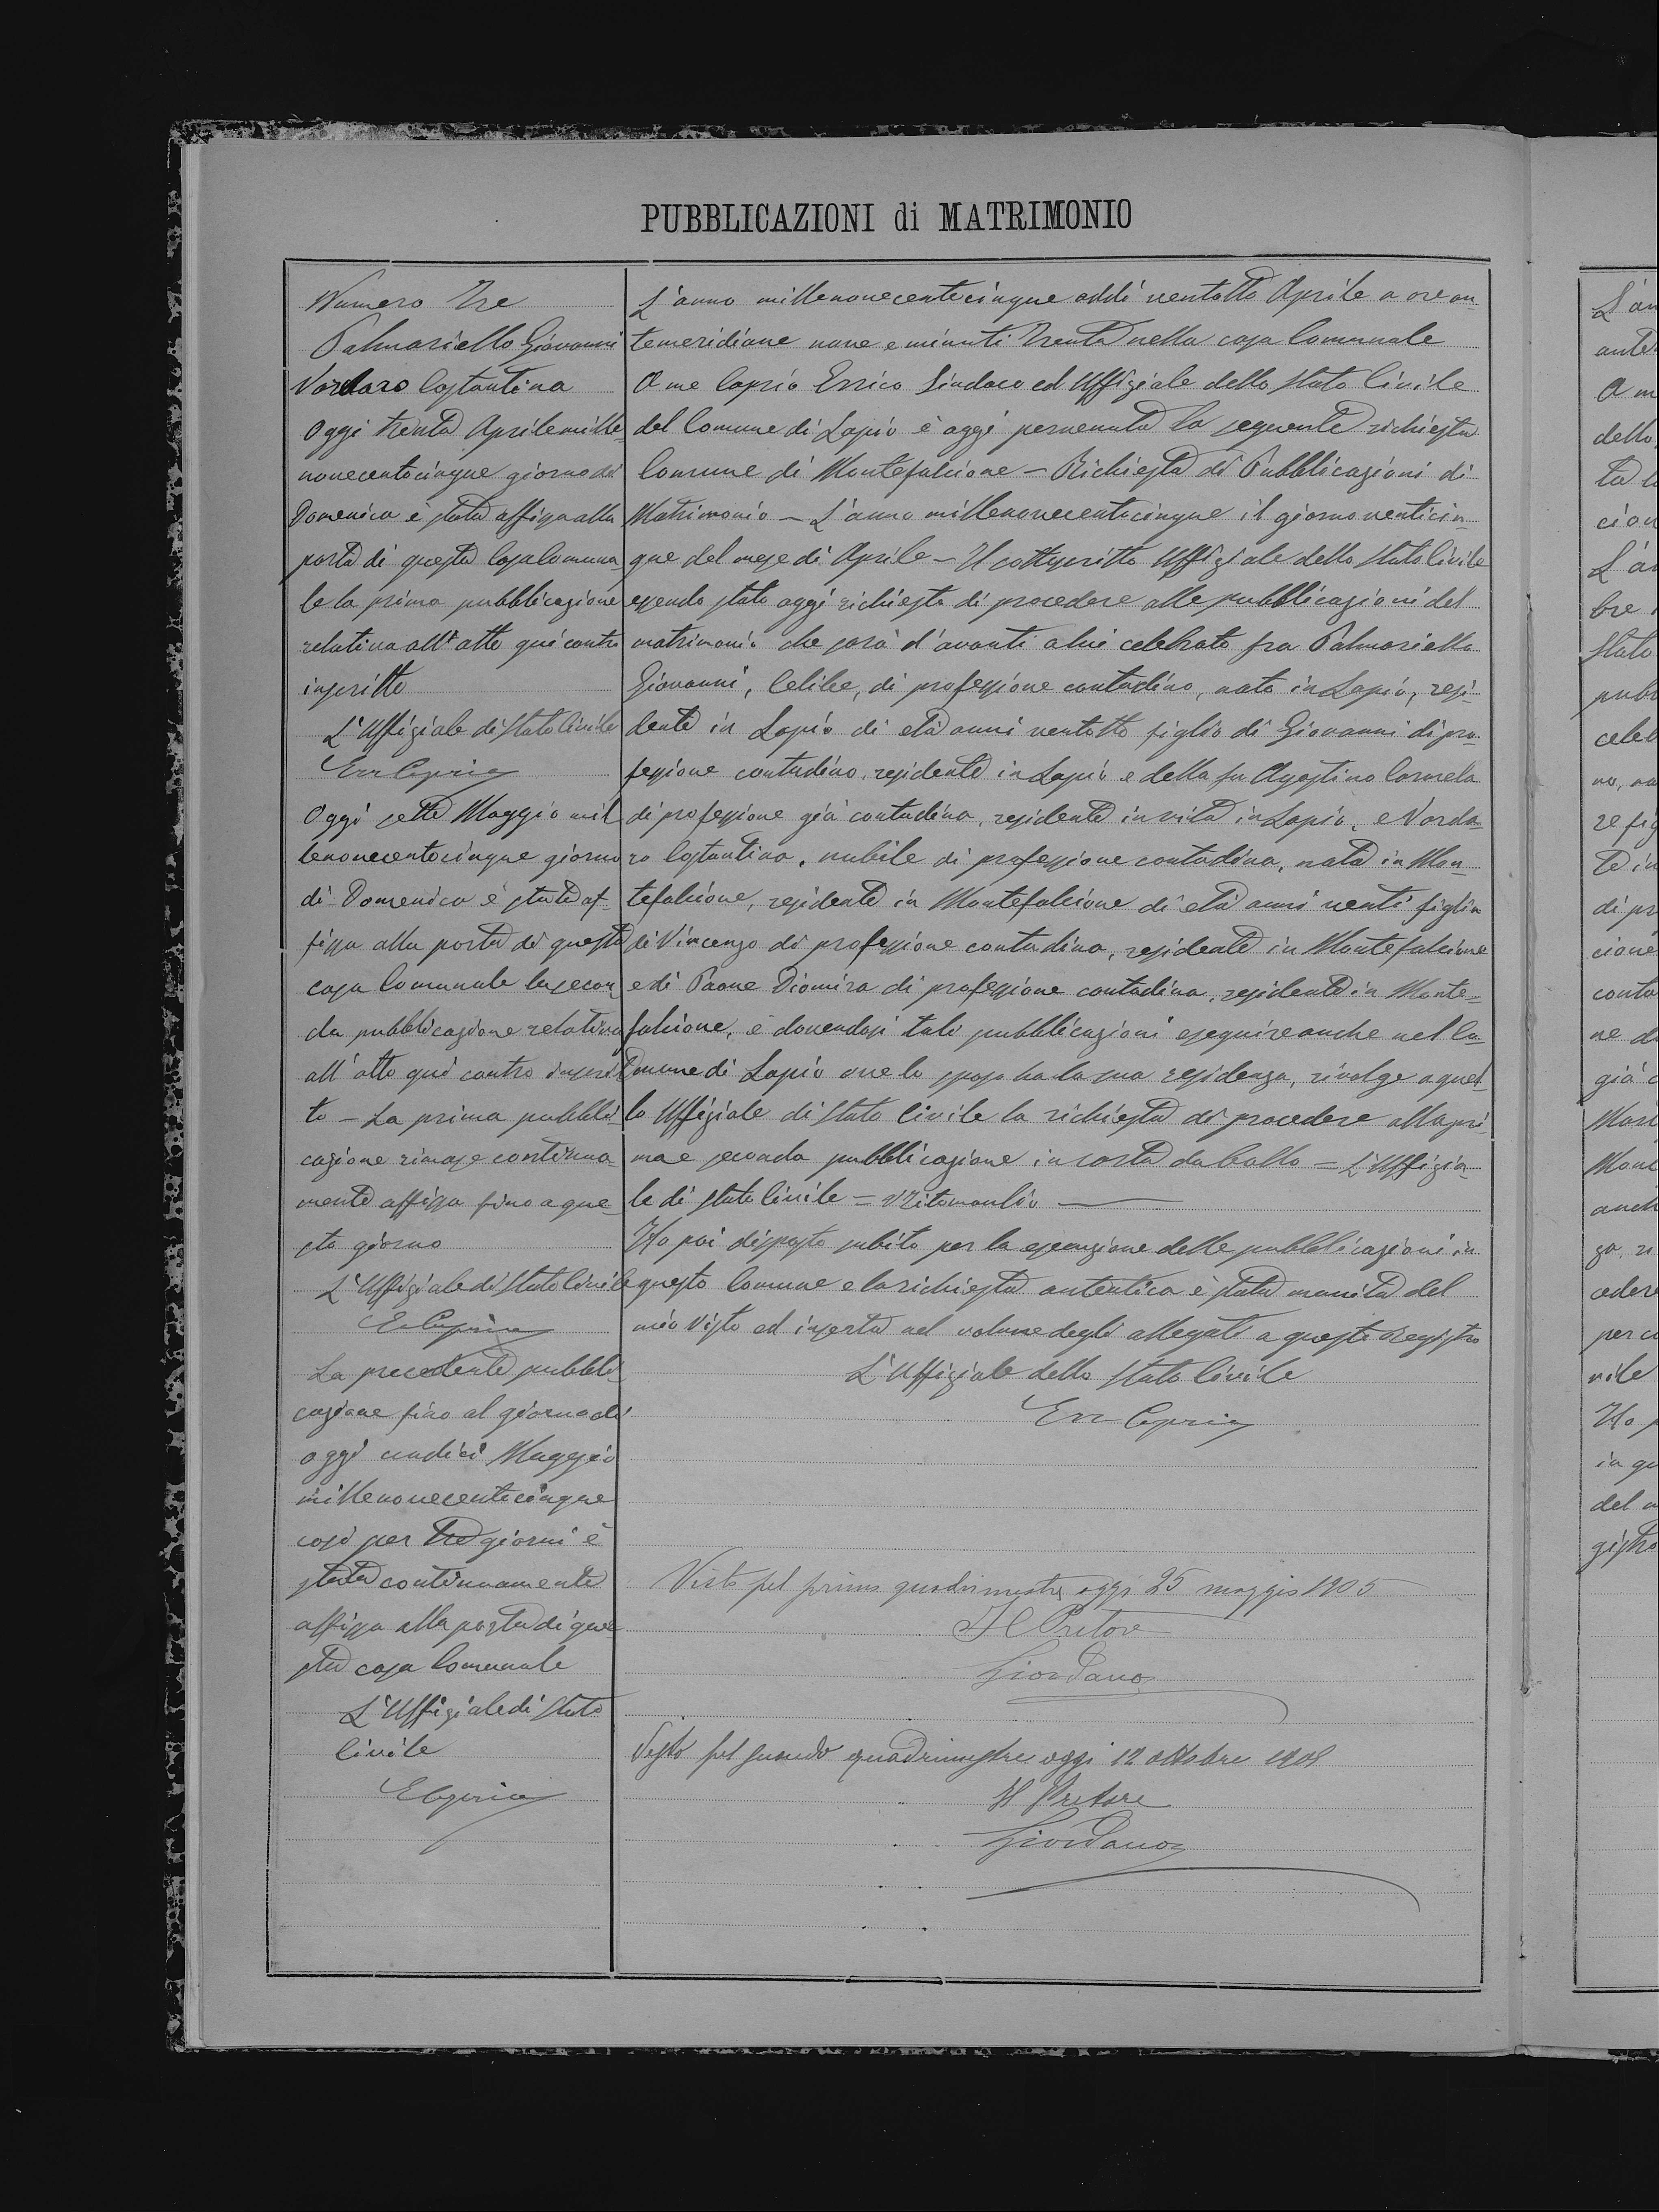 PUBBLICAZIONI di MATRIMONIO
Numero Tre
Palmariello Giovanni
Nardaro Costantina
Oggi trenta Aprile mille
novecentocinque giorno di
Domenica è stata affissa alla
porta di questa Casa Comuna-
le la prima pubblicazione
relativa all'atto qui contro
inscritto
L'Uffiziale di Stato Civile
Err Caprio
Oggi sette Maggio mil
lenovecentocinque giorno
di Domenica è stata af-
fissa alla porta di questa
casa Comunale la secon-
da pubblicazione relativa
all'atto qui contro inscrit
to - La prima pubbli-
cazione rimase continua-
mente affissa fino a que-
sto giorno
L'Uffiziale di Stato Civile
E Caprio
La precedente pubbli-
cazione fino al giorno di
oggi undici Maggio
millenovecentocinque
cosi per tre giorni è
stata continuamente
affissa alla porta di que
sta casa Comunale
L'Uffiziale di Stato
Civile
E Caprio
L'anno millenovecentocinque addi ventotto Aprile a ore an-
temeridiane nove e minuti trenta nella casa Comunale
A me Caprio Errico Sindaco ed Uffiziale dello Stato Civile
del Comune di Lapio è oggi pervenuta la seguente richiesta
Comune di Montefalcione - Richiesta di Pubblicazioni di
Matrimonio - L'anno millenovecentocinque il giorno venticin-
que del mese di Aprile - Il sottoscritto Uffiziale dello Stato Civile
essendo stato oggi richiesto di procedere alle pubblicazioni del
matrimonio che sarà d'avanti a lui celebrato fra Palmariello
Giovanni, Celibe, di professione contadino, nato in Lapio, resi-
dente in Lapio di età anni ventotto figlio di Giovanni di pro-
fessione contadino, residente in Lapio e della fu Agostino Carmela
di professione già contadina, residente in vita in Lapio, e Narda-
ro Costantina, nubile di professione contadina, nata in Mon-
tefalcione, residente in Montefalcione di età anni venti figlia
di Vincenzo di professione contadino, residente in Montefalcione
e di Paone Diomira di professione contadina, residente in Monte-
falcione, e dovendosi tali pubblicazioni eseguire anche nel Co-
mune di Lapio ove lo sposo ha la sua residenza, rivolge a quel-
lo Uffiziale di Stato Civile la richiesta di procedere alla pri-
ma e seconda pubblicazione in carta da bollo = L'Uffizia-
le di stato Civile =
Ho poi disposto subito per la esecuzione delle pubblicazioni in
questo Comune e la richiesta autentica è stata munita del
mio visto ed inserta nel volume degli allegati a questo registro
L'Uffiziale dello Stato Civile
Err Caprio
Visto pel primo quadrimestre oggi 25 maggio 1905
Il Pretore
Giordano
Visto pel secondo quadrimestre oggi 12 ottobre 1905
Il Pretore
Giordano